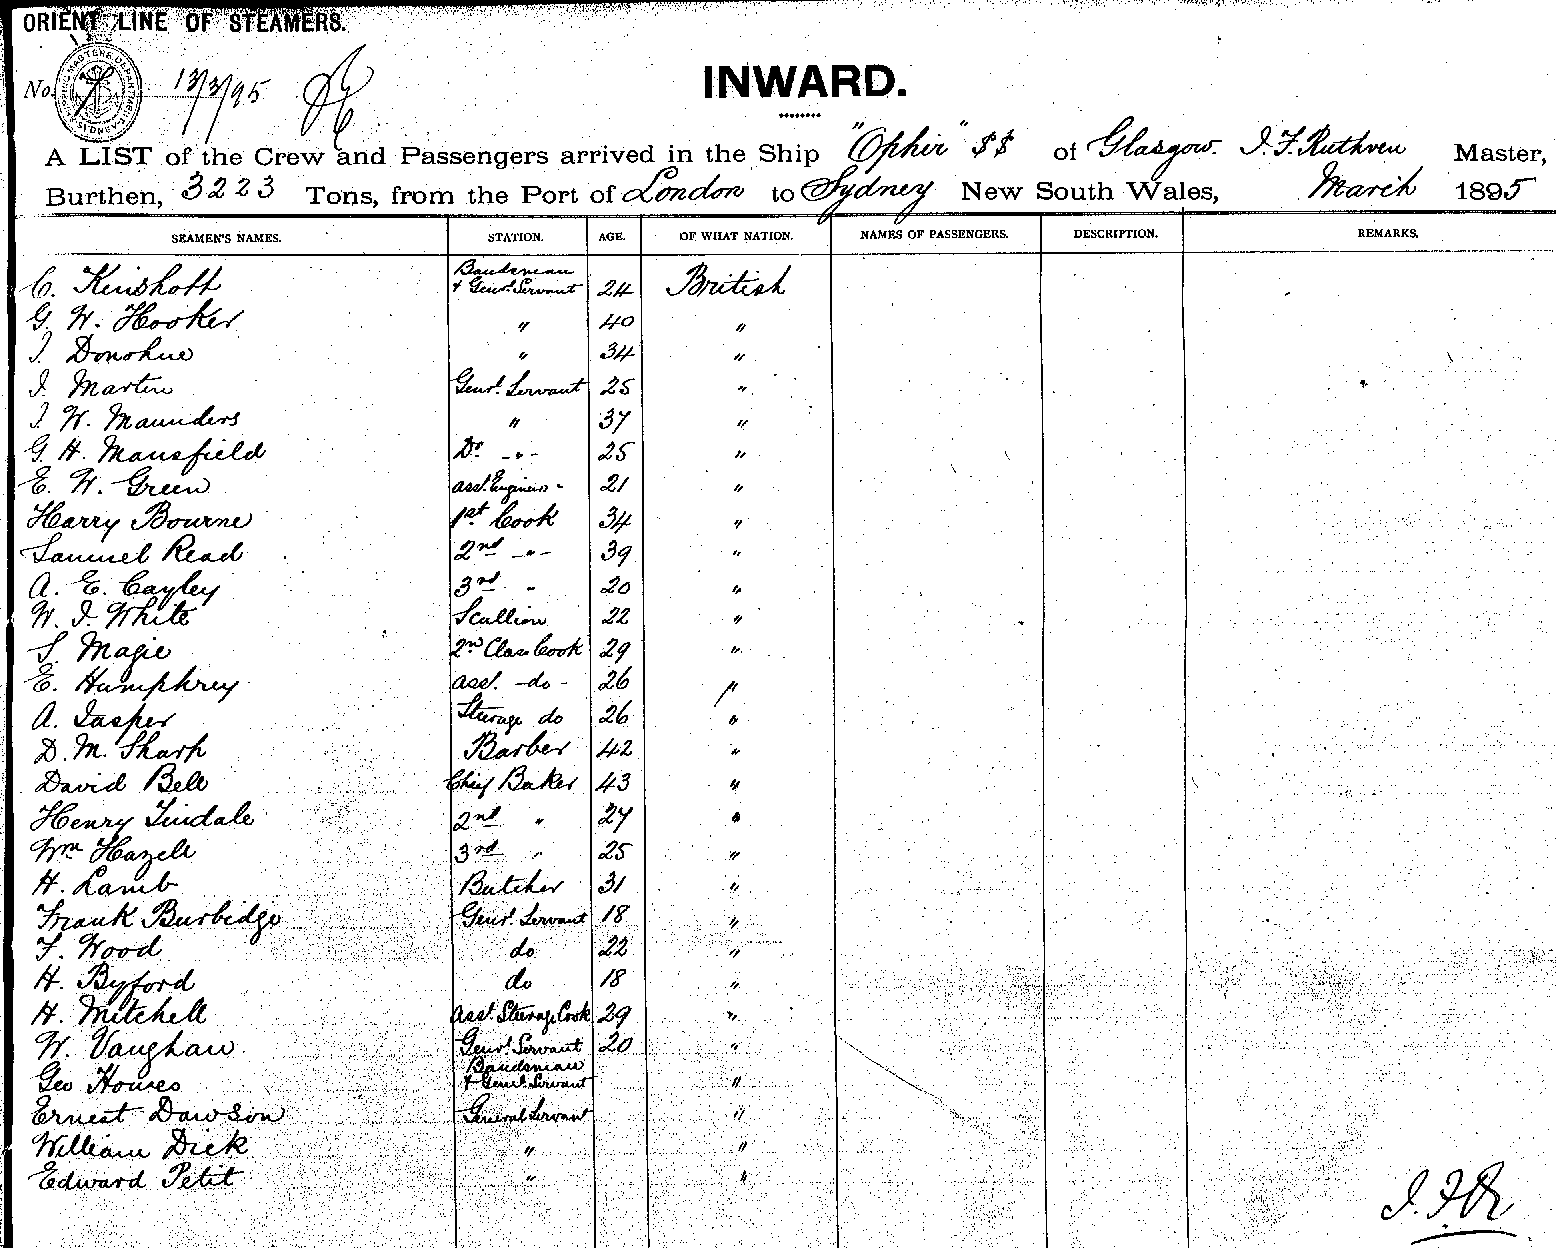 ORIENT LINE OF STEAMERS.
No. 13/3/95
INWARD.
A LIST of the Crew and Passengers arrived in the Ship "Ophir" SS of Glasgow. J. F. Ruthven Master,
Burthen, 3223 Tons, from the Port of London to Sydney New South Wales, March 1895
SEAMEN'S NAMES. STATION. AGE. OF WHAT NATION. NAMES OF PASSENGERS. DESCRIPTION. REMARKS.
C. Kinshott Bandsman & Genrl. Servant 24 British
G. W. Hooker " 40 "
J. Donohue " 34 "
J. Martin Genrl. Servant 25 "
J. W. Maunders " 37 "
G. H. Mansfield Do - " - 25 "
E. W. Green asst. Engineer - 21 "
Harry Bourne 1st Cook 34 "
Samuel Read 2nd - " - 39 "
A. E. Cayley 3rd " 20 "
W. J. White Scullion 22 "
S. Magie 2nd Class Cook 29 "
E. Humphrey asst. - do - 26 "
A. Jasper Steerage do 26 "
D. M. Sharp Barber 42 "
David Bell Chief Baker 43 "
Henry Tindale 2nd " 27 "
Wm Hazell 3rd " 25 "
H. Lamb Butcher 31 "
Frank Burbidge Genrl. Servant 18 "
F. Wood do 22 "
H. Byford do 18 "
H. Mitchell asst. Steerage Cook 29 "
W. Vaughan Genrl. Servant 20 "
Geo Howes Bandsman & Genrl. Servant "
Ernest Dawson General Servant "
William Dick " "
Edward Petit " "
J. F. R.